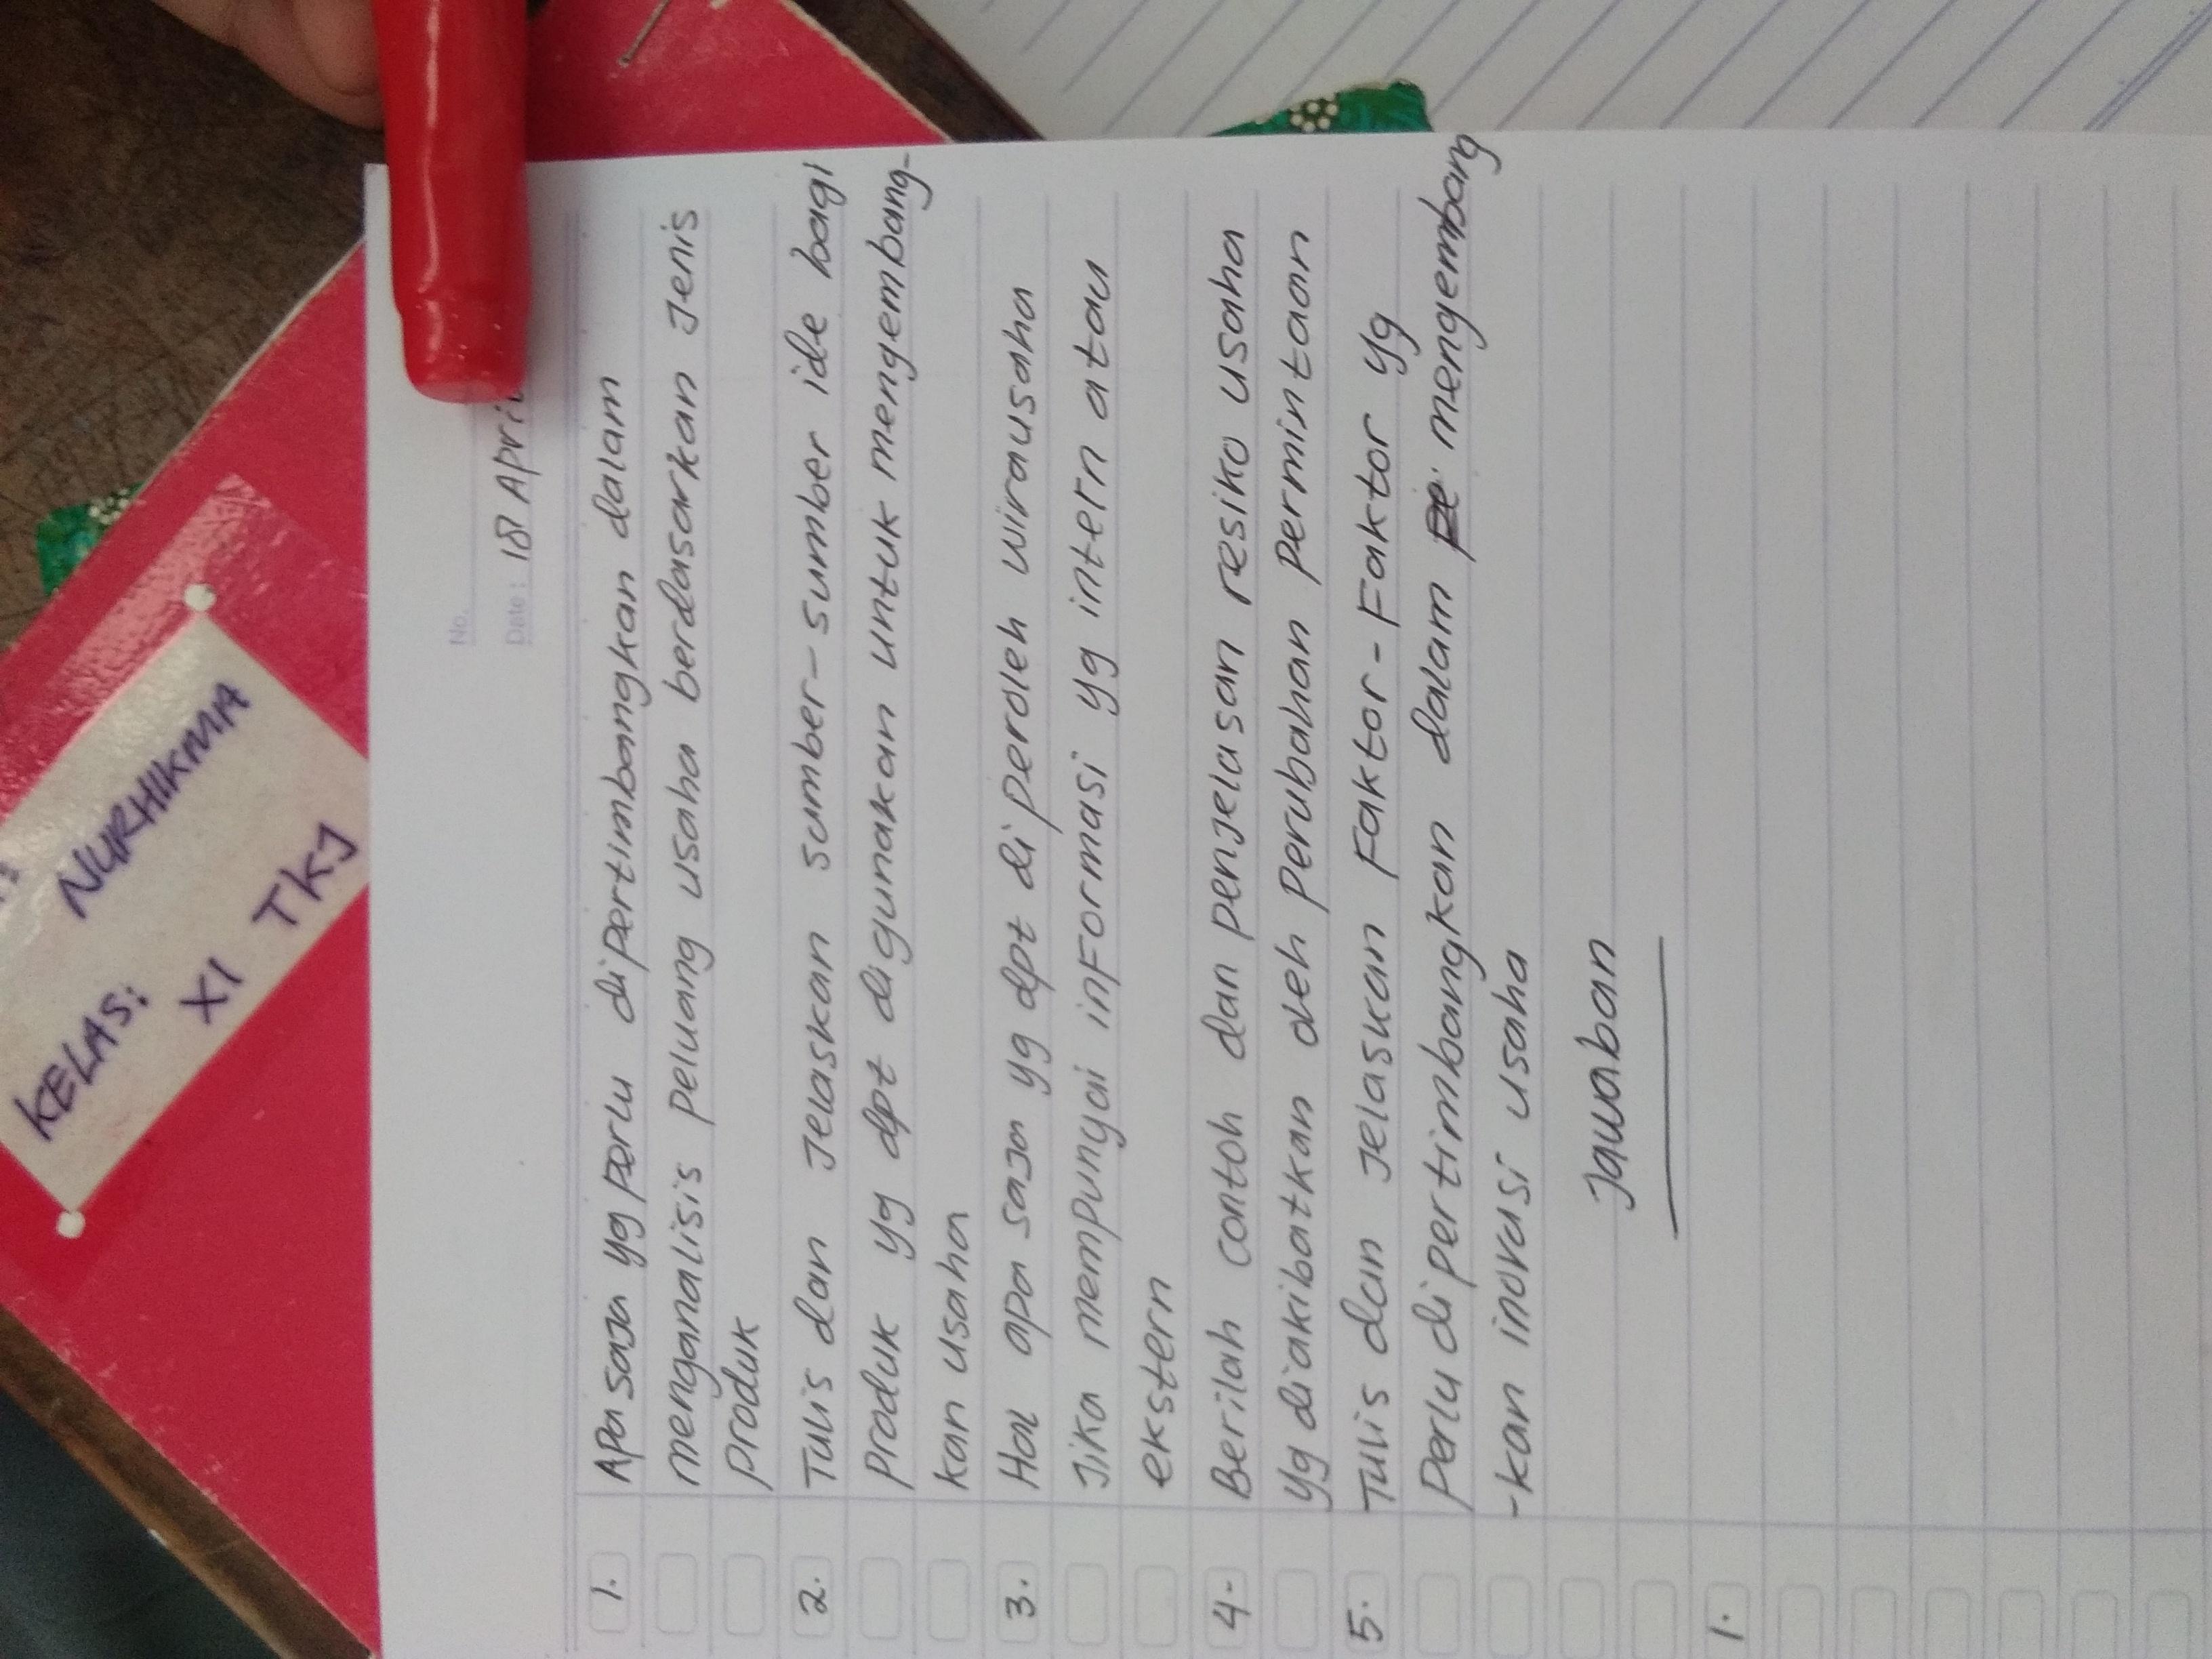 NURHIKMA
KELAS:
XI TKJ
No.
Date: 18 Apri
1. Apa saja yg perlu dipertimbangkan dalam
menganalisis peluang usaha berdasarkan Jenis
produk
2. Tulis dan Jelaskan sumber-sumber ide bagi
produk yg dpt digunakan untuk mengembang-
kan usaha
3. Hal apa saja yg dpt di peroleh wirausaha
Jika mempunyai informasi yg intern atau
ekstern
4. Berilah contoh dan penjelasan resiko usaha
yg diakibatkan oleh perubahan permintaan
5. Tulis dan Jelaskan Faktor-Faktor yg
perlu dipertimbangkan dalam mengembang
-kan inovasi usaha
Jawaban
1.